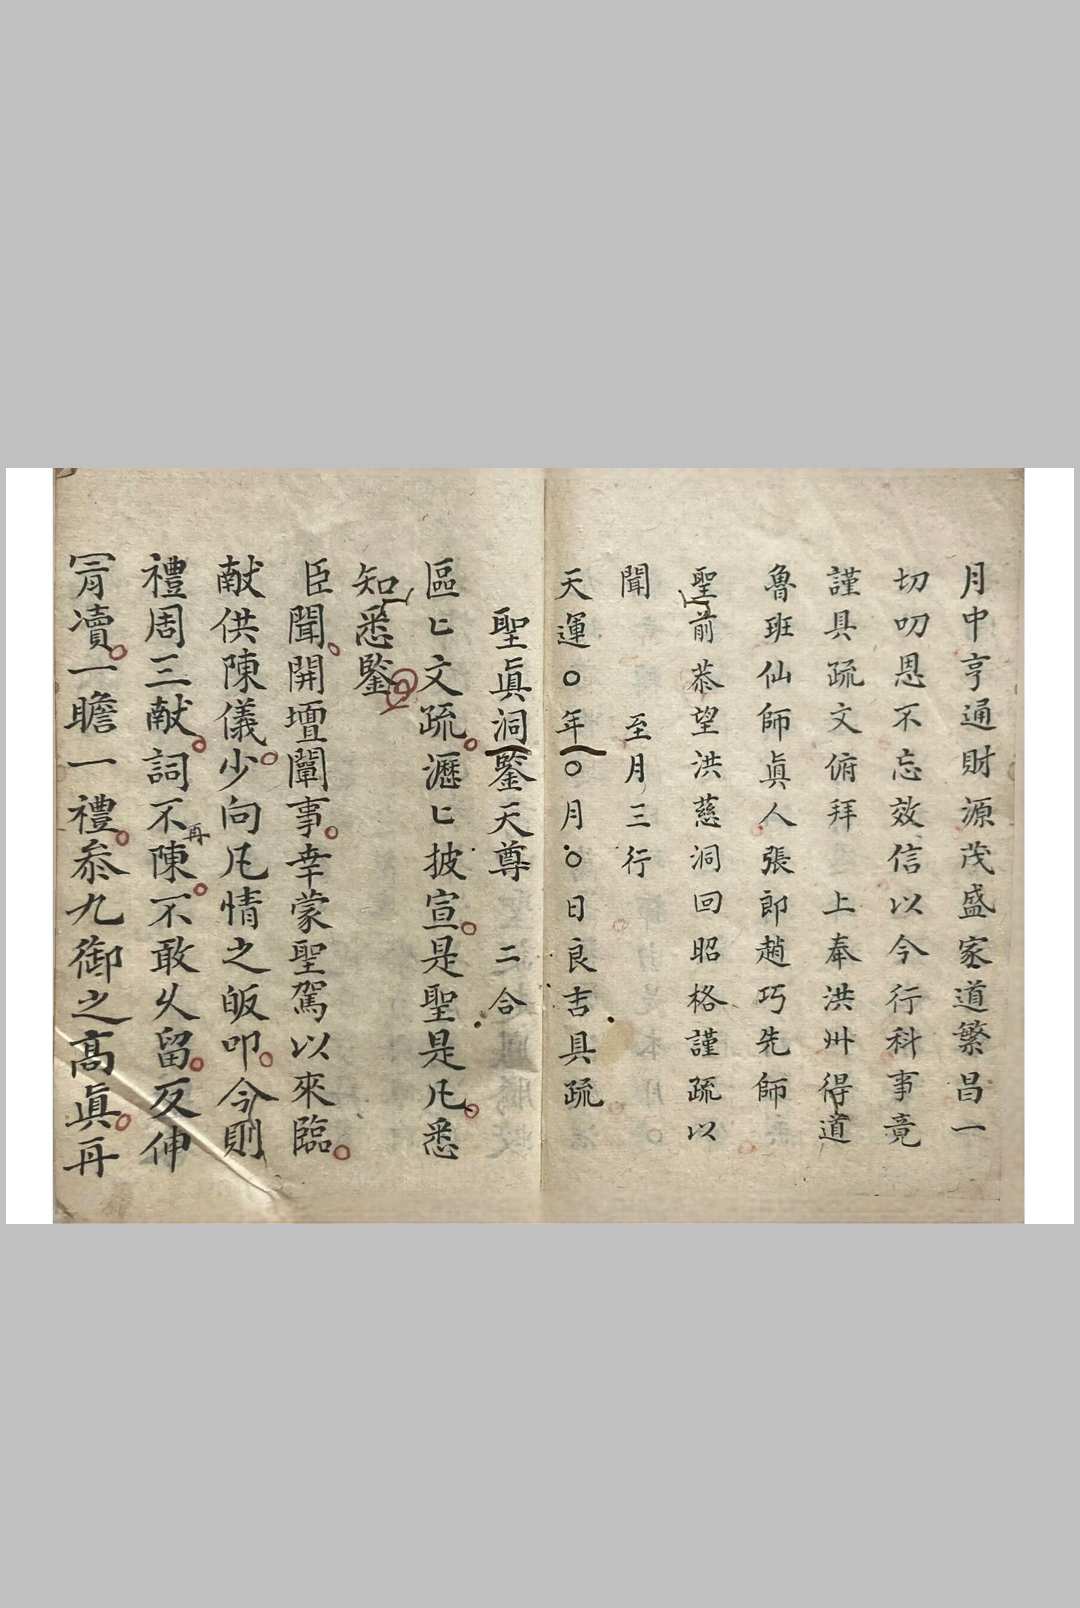 月中亨通財源茂盛家道繁昌一
切叨恩不忘效信以今行科事竟
謹具疏文俯拜上奉洪州得道
魯班仙師眞人張郎趙巧先師
聖前恭望洪慈洞回昭格謹疏以
聞 至月三行
天運〇年〇月〇日良吉具疏
聖眞洞鑒天尊 二合
區匕文疏瀝匕披宣是聖是凡悉
知悉鑒
臣聞開壇闡事幸蒙聖駕以來臨
献供陳儀少向凡情之皈叩今則
禮周三献詞不再陳不敢久留反伸
冐瀆一瞻一禮叅九御之髙眞再